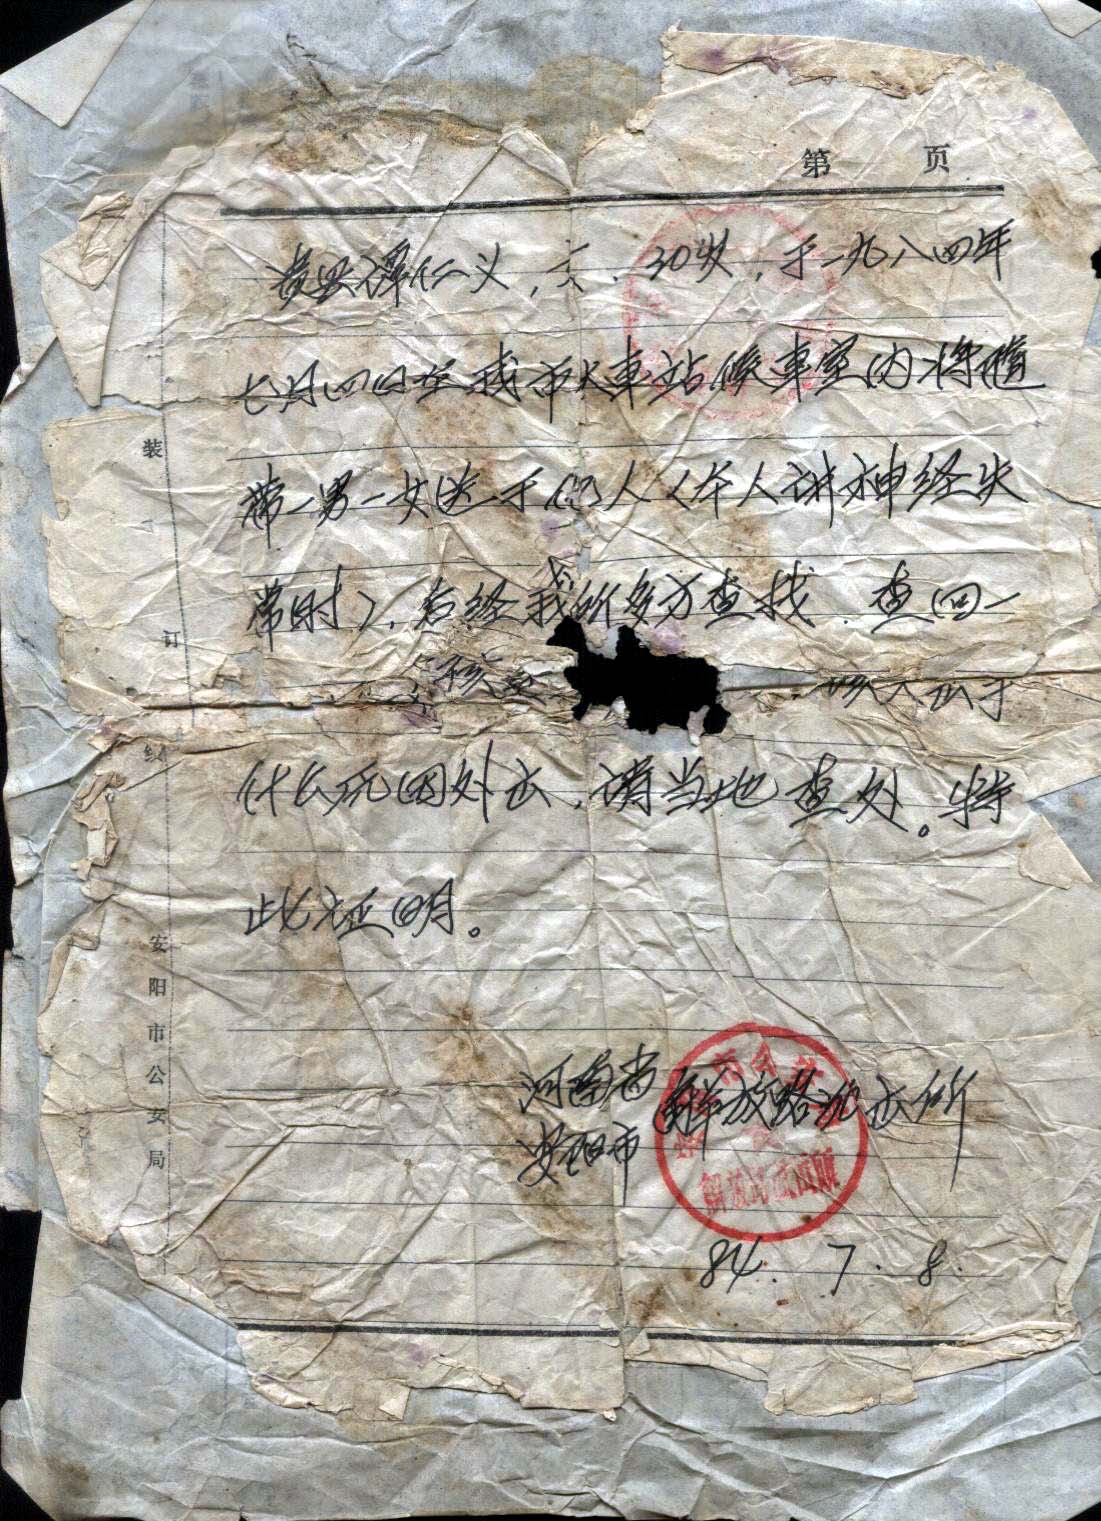 第 页
贵县谭仁义，女，30岁，于一九八四年
七月四日在我市火车站候车室内将携
带一男一女送于他人（本人讲神经失
常时），后经我所多方查找，查四一
该人出于
什么原因外出，请当地查处。特
此证明。
河南省
安阳市
解放路派出所
84.7.8.
装
订
线
安阳市公安局